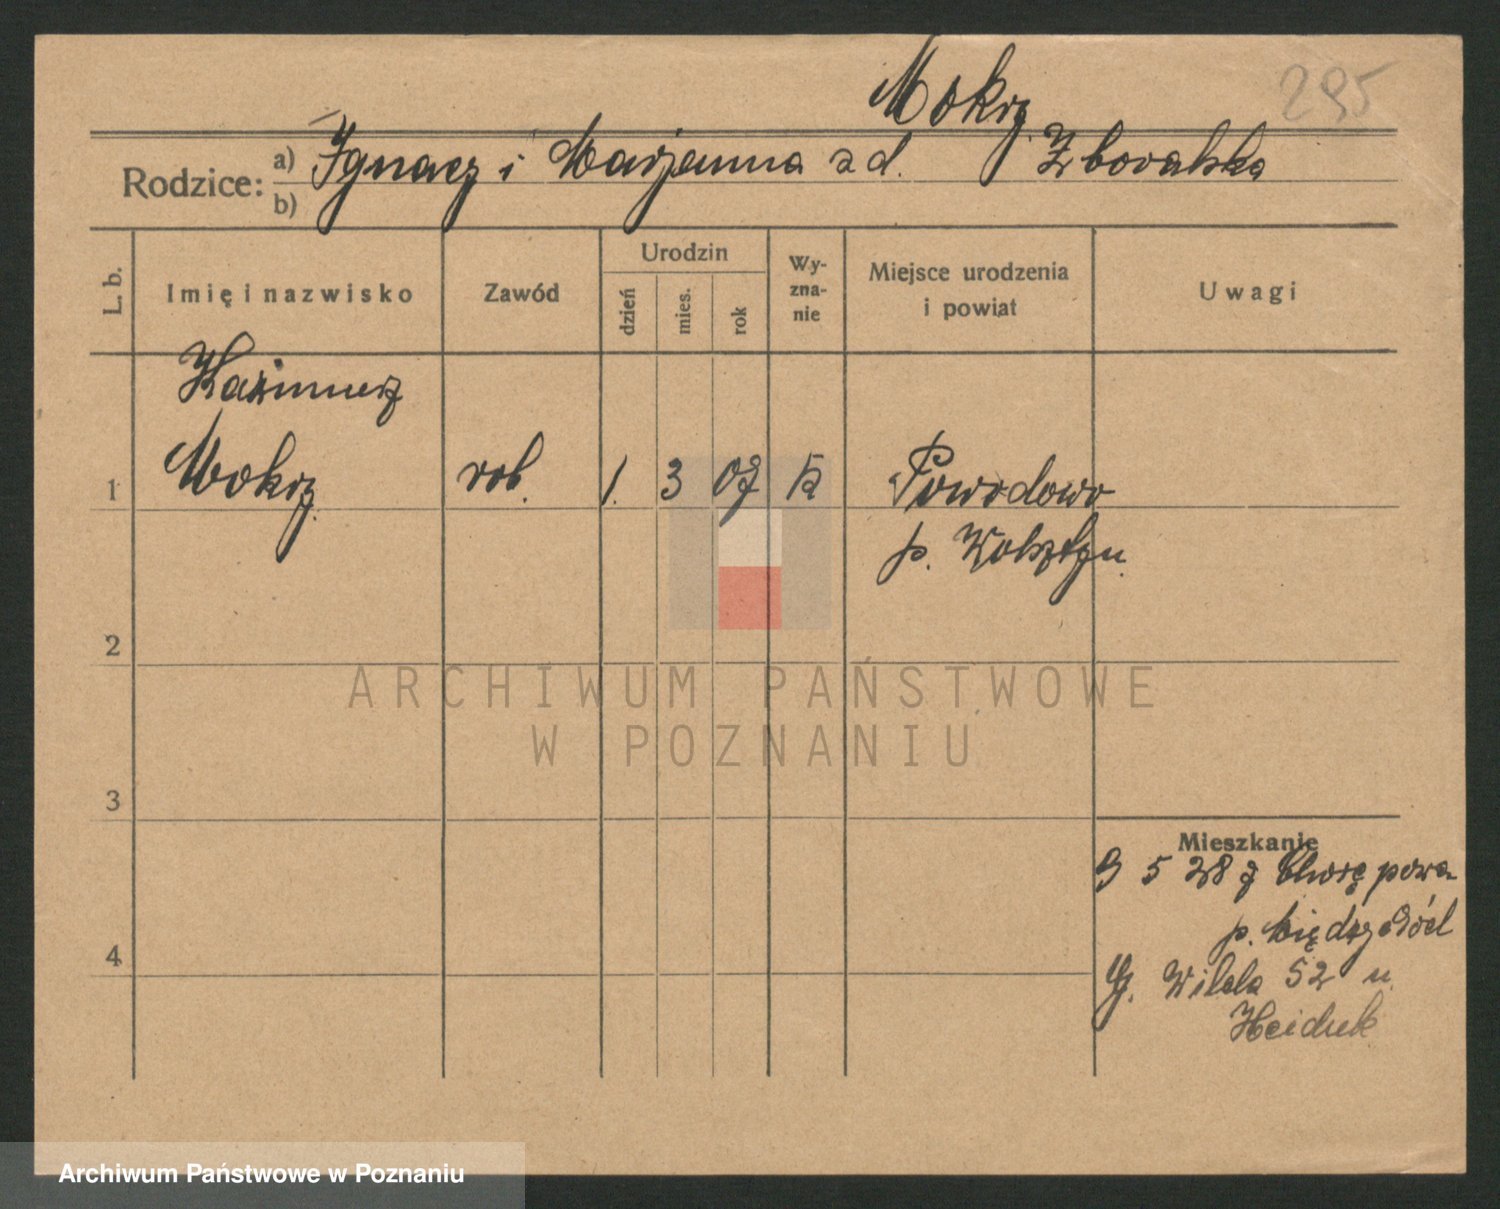 Mokrz
295
Rodzice:
a) Ignacz i Marjanna z d. Zboralska
b)
L. b.
Imię i nazwisko
Zawód
Urodzin
dzień
mies.
rok
Wy-
zna-
nie
Miejsce urodzenia
i powiat
Uwagi
Kazimierz
1 Mokrz. rob. 1. 3 07 k Powodowo
p. Wolsztyn.
2
3
4
Mieszkanie
3 5 28 z
p. Międzychód
52 u.
Heiduk
ARCHIWUM PAŃSTWOWE
W POZNANIU
Archiwum Państwowe w Poznaniu